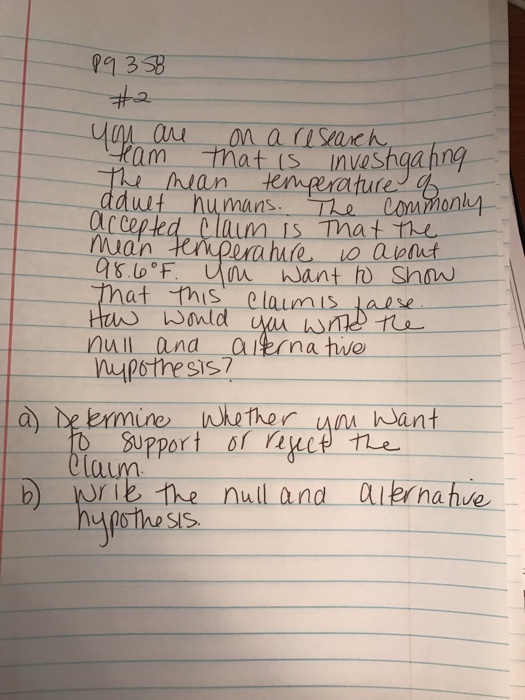 pg 358
#2
you are on a research
team that is investigating
The mean temperature of
adult humans. The commonly
accepted claim is That the
mean temperature is about
98.6°F. You want to show
That this claim is false.
How would you write the
null and alternative
hypothesis?
a) Determine whether you want
to support or reject the
claim.
b) write the null and alternative
hypothesis.